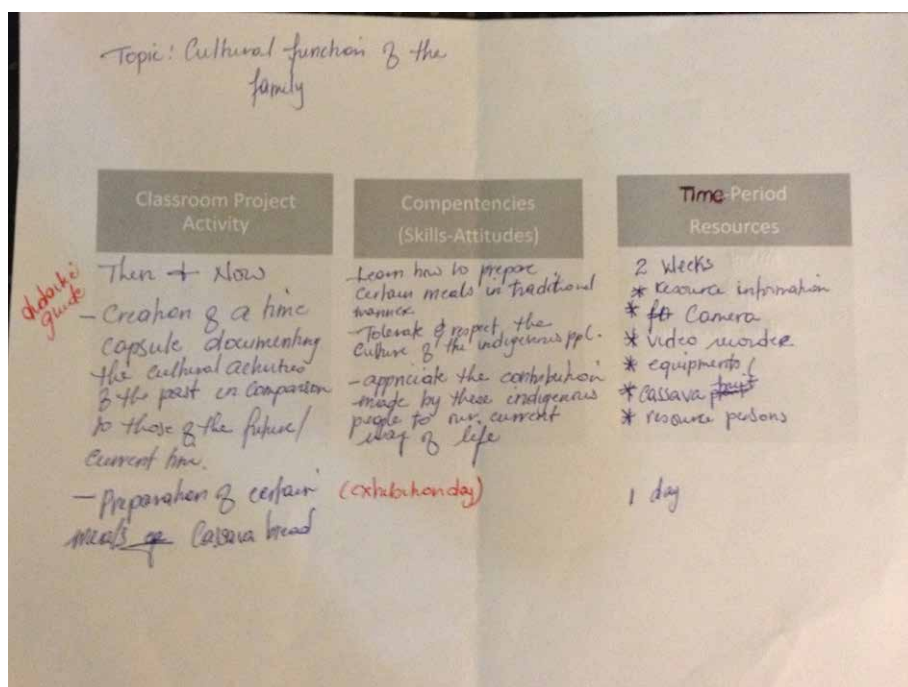 Topic: Cultural function of the
family
Classroom Project
Activity
Then + Now
- Creation of a time
capsule documenting
the cultural activities
of the past in comparison
to those of the future/
current time.
- Preparation of certain
meals eg Cassava bread
guide
Compentencies
(Skills-Attitudes)
- Learn how to prepare
certain meals in traditional
manner
- Tolerate & respect, the
culture of the indigenous ppl.
- appriciate the contribution
made by these indigenous
people to our current
way of life
(exhibition day)
Time-Period
Resources
2 Weeks
* resource information
* Camera
* video recorder
* equipments /
* cassava
* resource persons
1 day